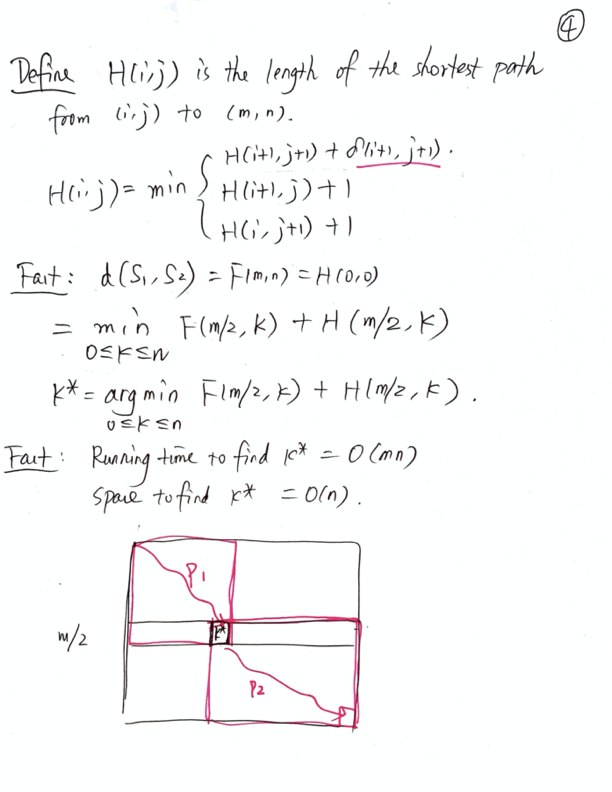 ④
Define H(i,j) is the length of the shortest path
from (i,j) to (m,n).
H(i+1,j+1) + δ(i+1, j+1).
H(i,j) = min { H(i+1,j) + 1
H(i,j+1) + 1
Fact: d(S₁,S₂) = F(m,n) = H(0,0)
= min F(m/2, K) + H(m/2, K)
0≤K≤n
K* = arg min F(m/2, K) + H(m/2, K).
0≤K≤n
Fact: Running time to find K* = O(mn)
Space to find K* = O(n).
P1
m/2 K*
P2